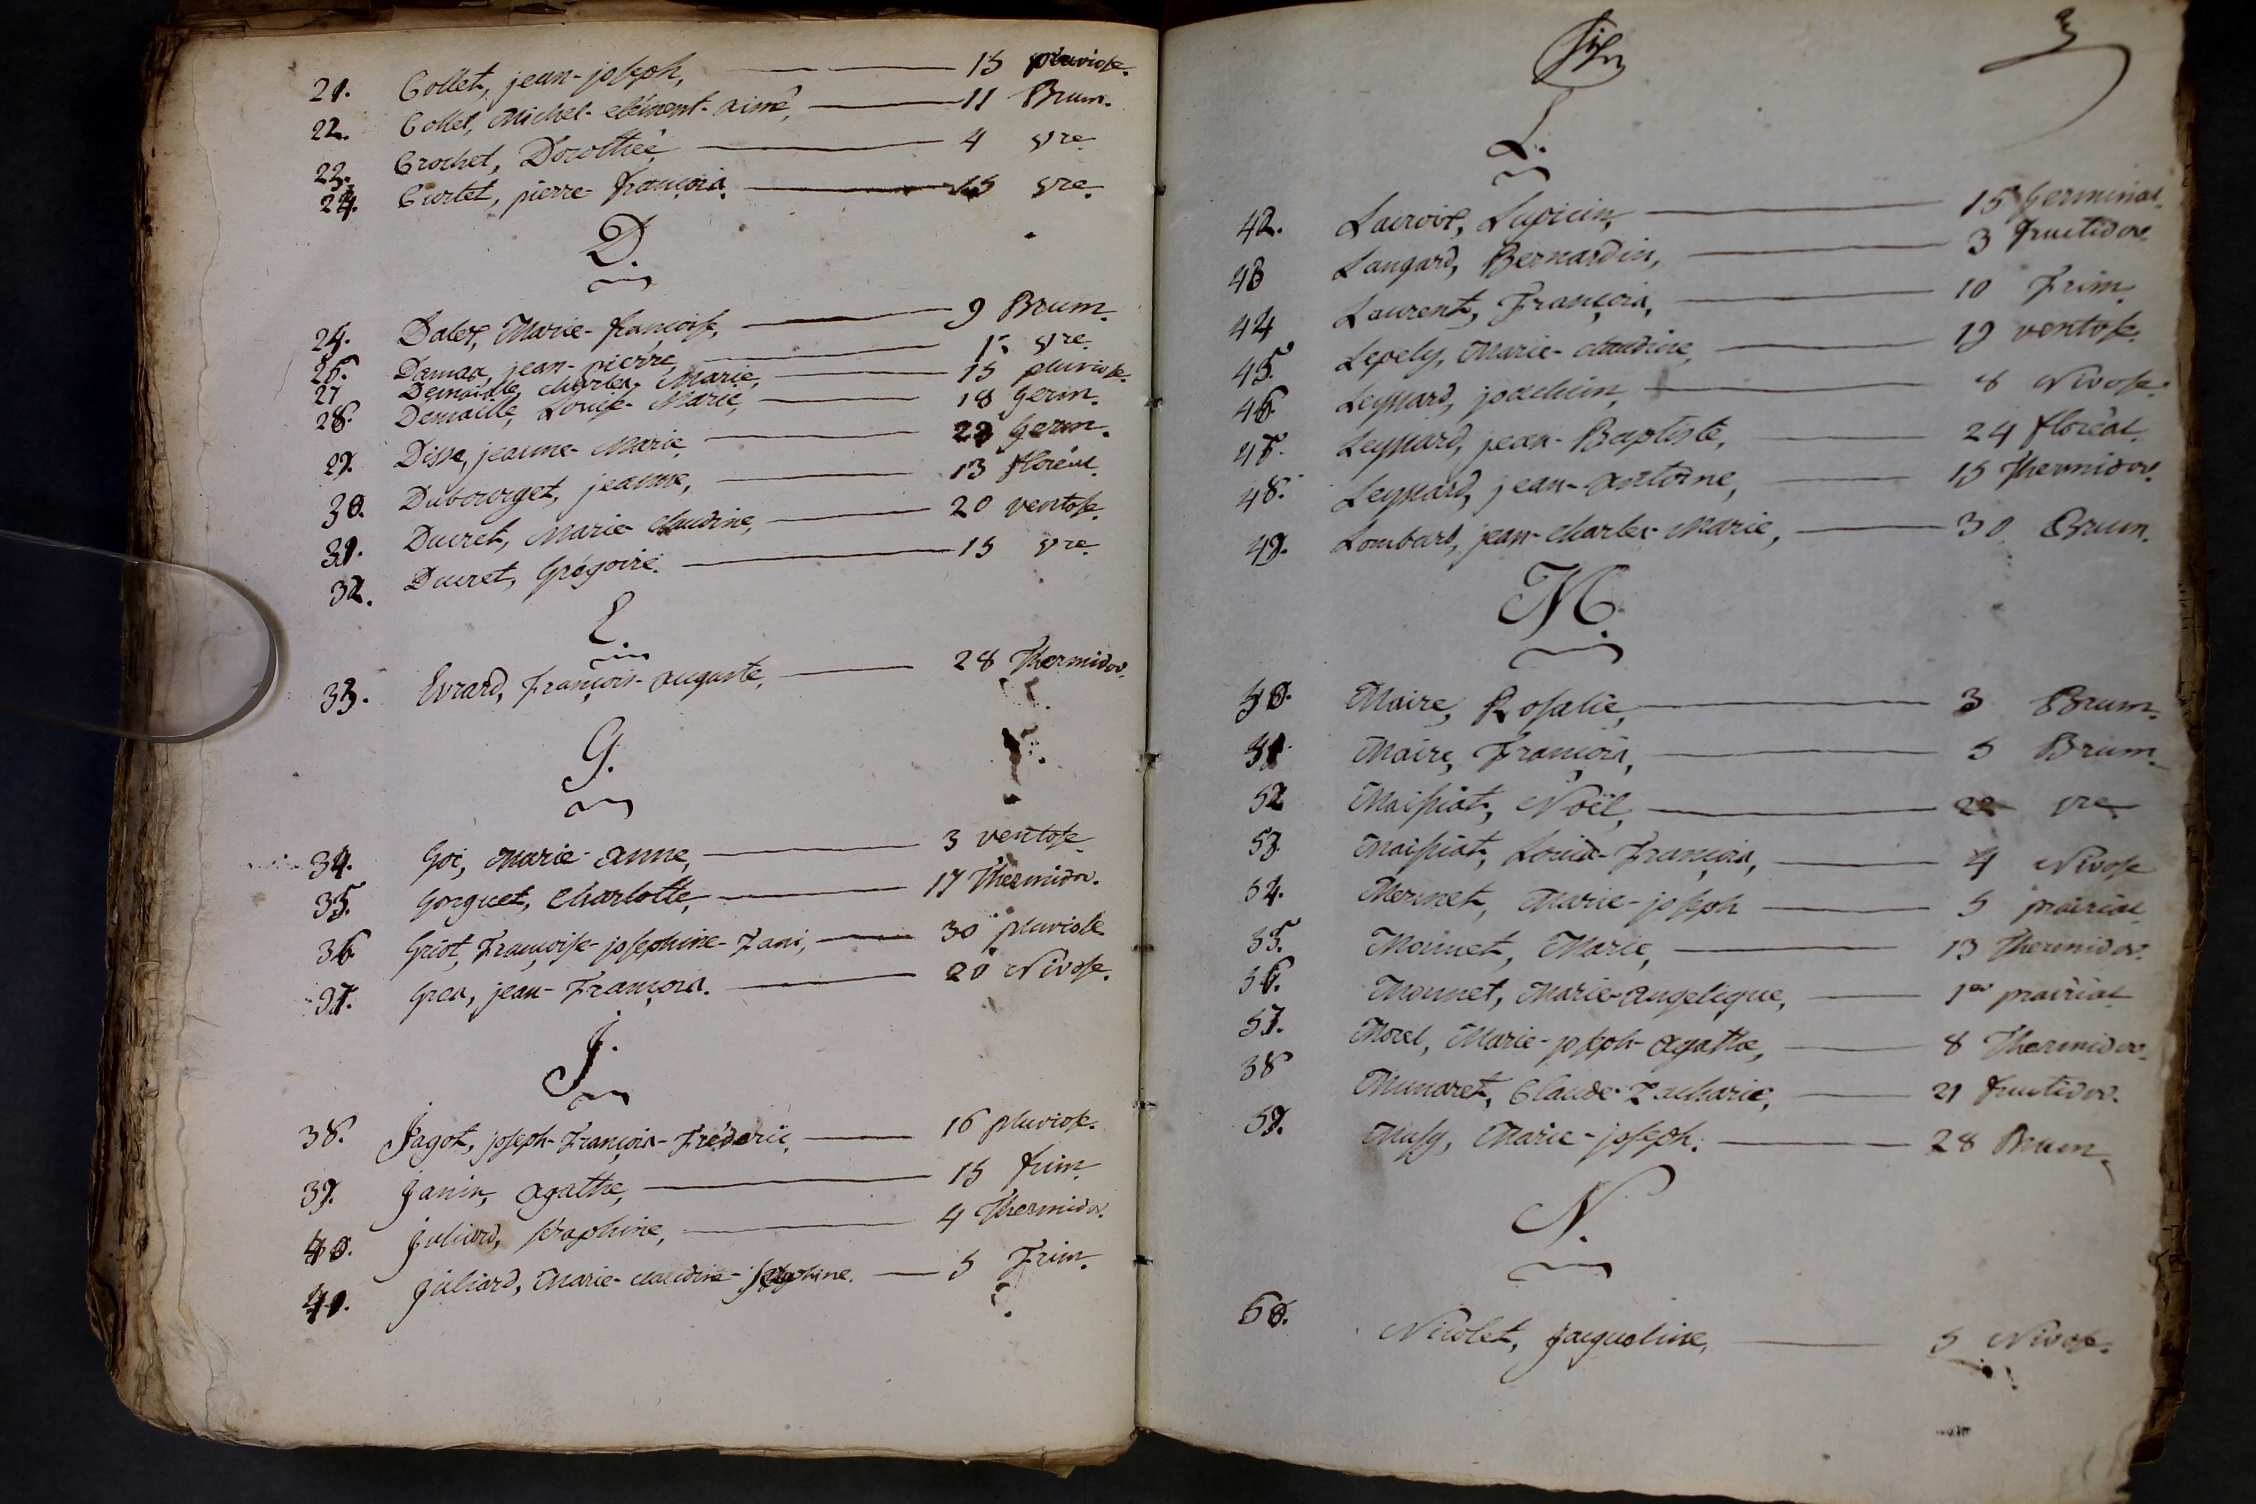 21. Collet, jean-joseph, 15 pluviose.
22. Collet, Michel-clément-aimé, 11 Brum.
23. Crochet, Dorothée, 4 vre.
24. Curtet, pierre françois. 15 vre.
D.
24. Dalex, Marie-françoise, 9 Brum.
26. Damas, jean-pierre, vre.
27 Demaille, charles-Marie, 15 pluviose.
28. Demaille, Louise-Marie, 18 Germ.
29. Disse, jeanne-Marie, 23 Germ.
30. Dubourget, jeanne, 13 floréal.
31. Ducret, Marie-claudine, 20 ventose.
32. Ducret, Grégoire. 15 vre.
E.
33. Evrard, François-auguste, 28 Thermidor.
G.
34. Goi, Marie-anne, 3 ventose.
35. Gorguet, Charlotte, 17 Thermidor.
36 Griot, Françoise-josephine-Fani, 30 pluviose
37. Grea, jean-François. 20 Nivose.
J.
38. Jagot, joseph-François-Fréderic, 16 pluviose.
39. Janin, agathe, 15 frim.
40. Juliard, séraphine, 4 Thermidor.
41. Juliard, Marie-claudine-josephine. 5 Frim.
3
L.
42. Lacroix, Lupicin, 15 Germinal.
43 Langard, Bernardin, 3 fructidor.
44 Laurent, François, 10 Frim.
45. Lepely, Marie-claudine, 19 ventose.
46. Leyssard, joachim, 8 Nivose.
47. Leyssard, jean-Baptiste, 24 floréal.
48. Leyssard, jean-antoine, 15 Thermidor.
49. Lombard, jean-charles-Marie, 30 Brum.
M.
50. Maire, Rosalie, 3 Brum.
51. Maire, François, 5 Brum.
52 Maissiat, Noël, 22 vre
53. Maissiat, Louis-François, 4 Nivose
54. Mermet, Marie-joseph 5 prairial
55. Monnet, Marie, 13 Thermidor.
56. Monnet, Marie-angelique, 1er prairial
57. Morel, Marie-joseph-agathe, 8 Thermidor.
58 Munaret, Claude-Zacharie, 21 fructidor.
59. Mussy, Marie-joseph. 28 Brum.
N.
60. Nicolet, Jacqueline, 5 Nivose.